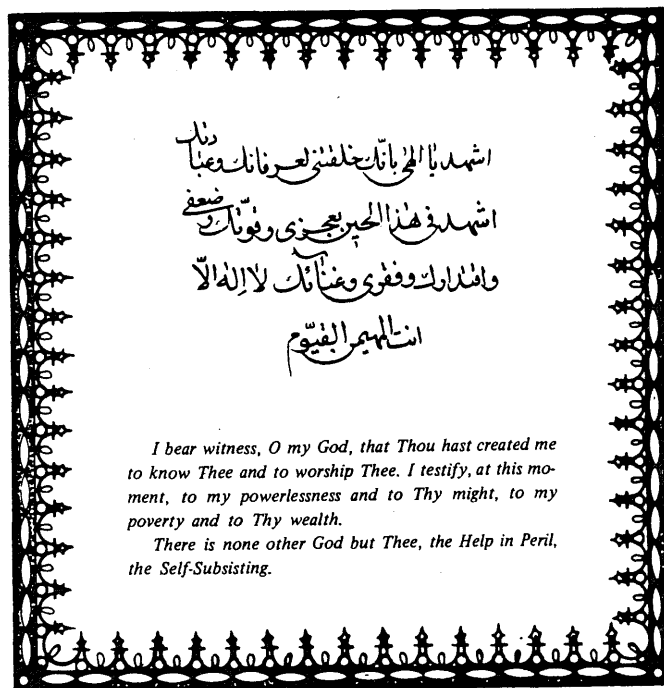 اشهد يا الهي بانّك خلقتني لعرفانك وعبادتك
اشهد في هذا الحين بعجزي وقوّتك وضعفي
واقتدارك وفقري وغنائك لا اله الّا
انت المهيمن القيّوم
I bear witness, O my God, that Thou hast created me
to know Thee and to worship Thee. I testify, at this mo-
ment, to my powerlessness and to Thy might, to my
poverty and to Thy wealth.
There is none other God but Thee, the Help in Peril,
the Self-Subsisting.